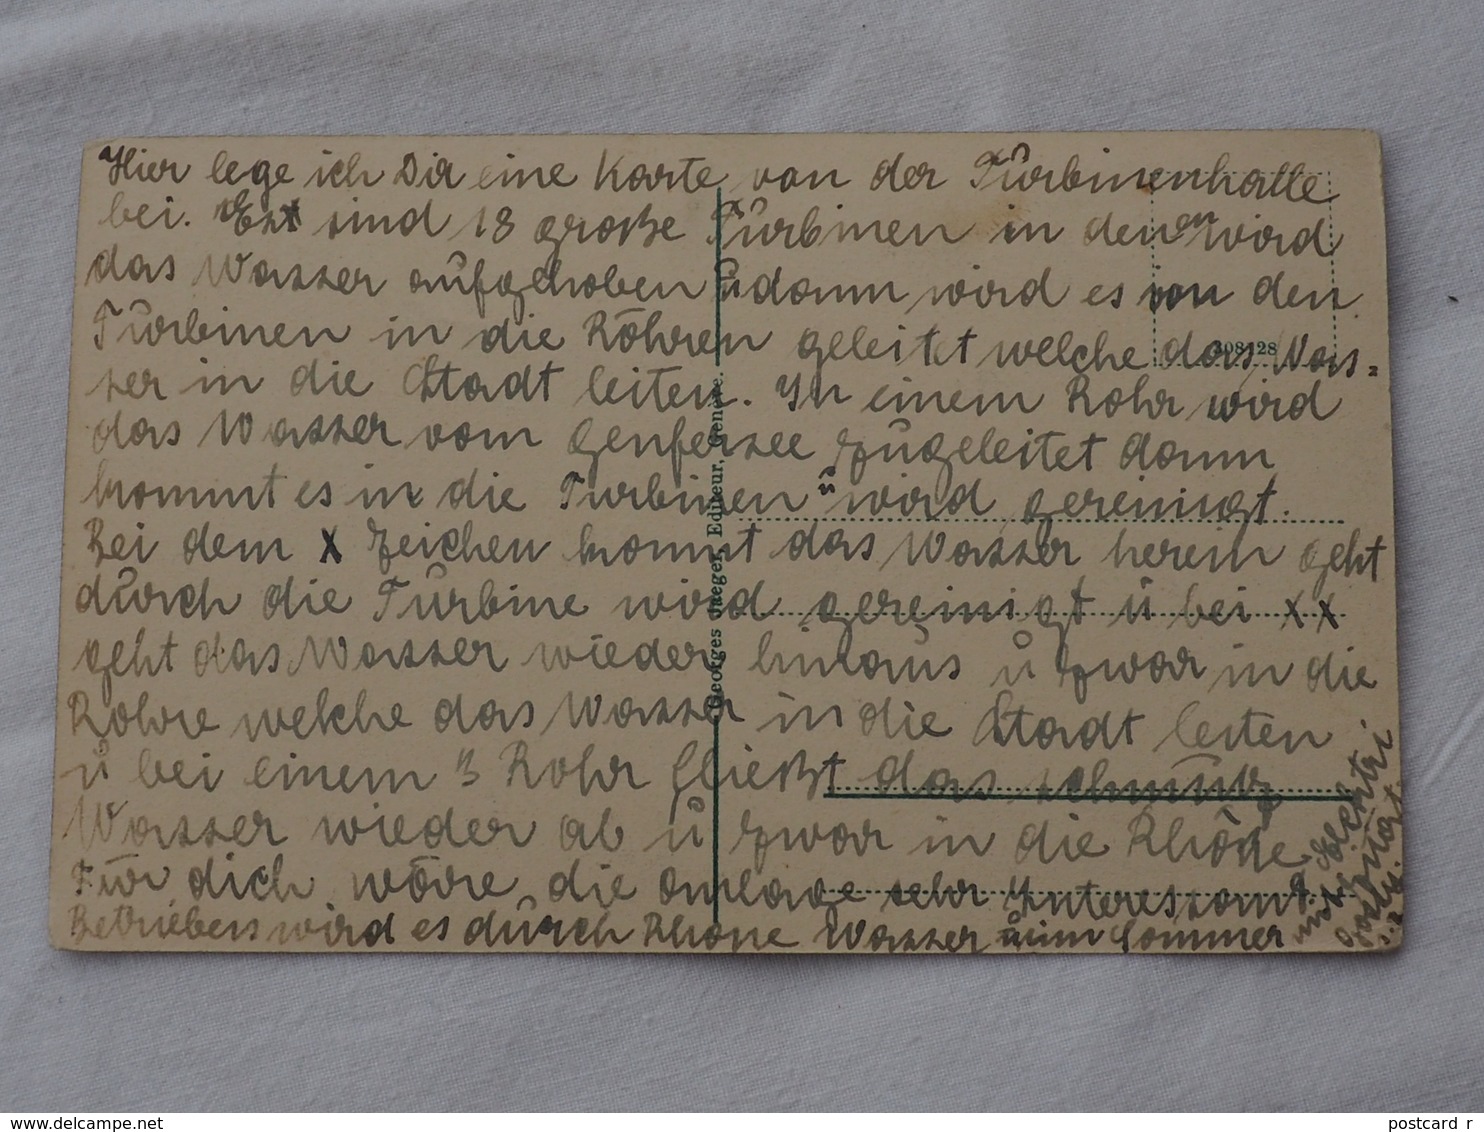 Hier lege ich Dir eine Karte von der Turbinenhalle
bei. Es sind 18 große Turbinen in denen wird
das Wasser aufgehoben u dann wird es von den
Turbinen in die Röhren geleitet welche das Was=
ser in die Stadt leiten. In einem Rohr wird
das Wasser vom Genfersee zugeleitet dann
kommt es in die Turbinen u wird gereinigt.
Bei dem X Zeichen kommt das Wasser herein geht
durch die Turbine wird gereinigt u bei x x
geht das Wasser wieder hinaus u zwar in die
Rohre welche das Wasser in die Stadt leiten
u bei einem 3 Rohr fließt das schmutz
Wasser wieder ab u zwar in die Rhône
Für dich wäre die Anlage sehr Interessant.
Betrieben wird es durch Rhone Wasser u im Sommer
mit Elektri
Georges Jaeger, Editeur, Genève.